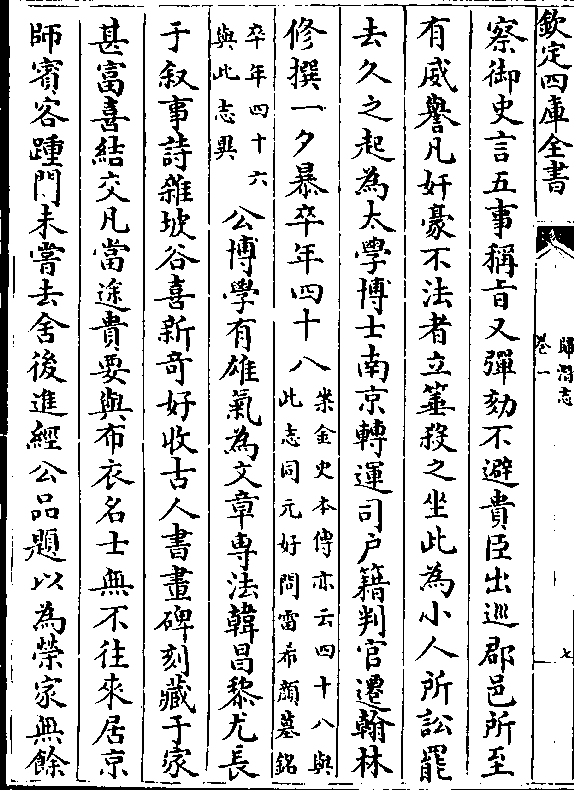 欽定四庫全書
歸潛志
卷一
七
察御史言五事稱旨又彈劾不避貴臣出巡郡邑所至
有威譽凡奸豪不法者立箠殺之坐此為小人所訟罷
去久之起為太學博士南京轉運司户籍判官遷翰林
修撰一夕暴卒年四十八
案金史本傳亦云四十八與
此志同元好問雷希顏墓銘
卒年四十六
與此志異
公博學有雄氣為文章専法韓昌黎尤長
于叙事詩雜坡谷喜新奇好收古人書畫碑刻藏于家
甚富喜結交凡當途貴要與布衣名士無不往來居京
師賓客踵門未嘗去舍後進經公品題以為榮家無餘